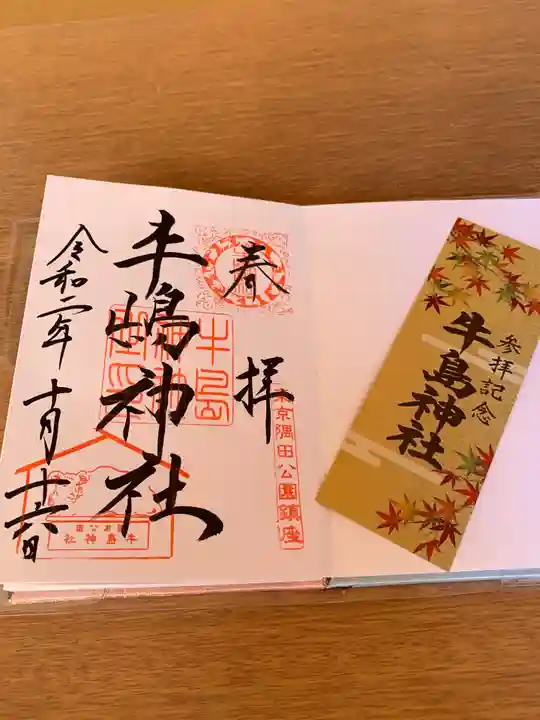 奉拝
東京隅田公園鎮座
牛嶋神社
牛島
神社
牛島神社
令和二年十月廿六日
参拝記念
牛島神社